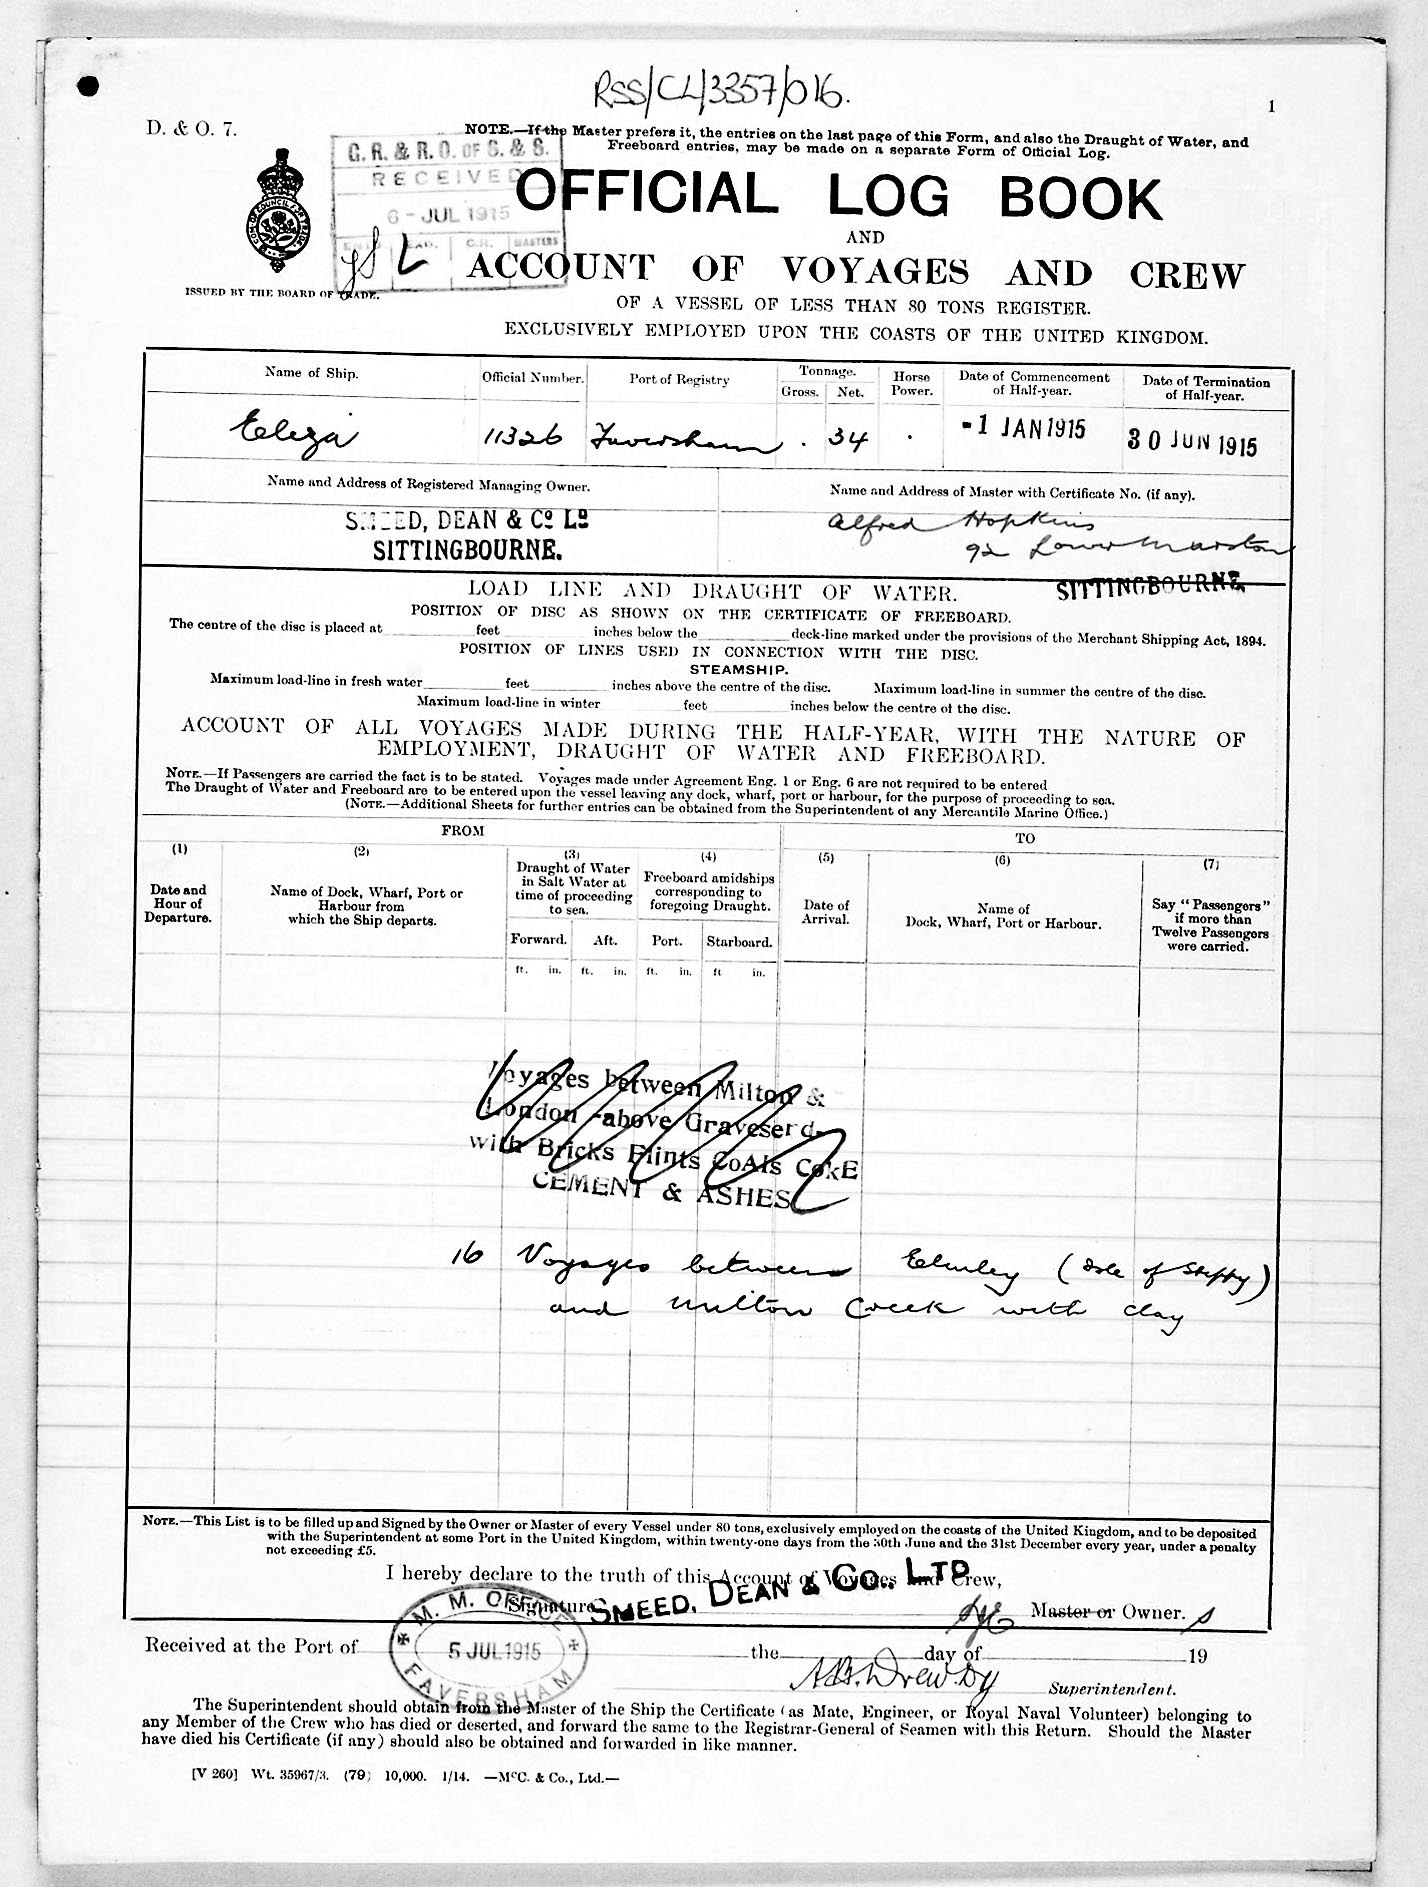 RSS/CL/3357/016.
1
D. & O. 7.
NOTE.—If the Master prefers it, the entries on the last page of this Form, and also the Draught of Water, and
Freeboard entries, may be made on a separate Form of Official Log.
G. R. & R. O. OF S. & S.
RECEIVED
6 - JUL 1915
OFFICIAL LOG BOOK
AND
ACCOUNT OF VOYAGES AND CREW
ISSUED BY THE BOARD OF TRADE.
OF A VESSEL OF LESS THAN 80 TONS REGISTER.
EXCLUSIVELY EMPLOYED UPON THE COASTS OF THE UNITED KINGDOM.
Name of Ship. Official Number. Port of Registry Tonnage. Gross. Net. Horse Power. Date of Commencement of Half-year. Date of Termination of Half-year.
Eliza 11326 Faversham . 34 . -1 JAN 1915 30 JUN 1915
Name and Address of Registered Managing Owner. Name and Address of Master with Certificate No. (if any).
SMEED, DEAN & Co. Ld Alfred Hopkins
SITTINGBOURNE. 92 Lower Murston
SITTINGBOURNE
LOAD LINE AND DRAUGHT OF WATER.
POSITION OF DISC AS SHOWN ON THE CERTIFICATE OF FREEBOARD.
The centre of the disc is placed at feet inches below the deck-line marked under the provisions of the Merchant Shipping Act, 1894.
POSITION OF LINES USED IN CONNECTION WITH THE DISC.
STEAMSHIP.
Maximum load-line in fresh water feet inches above the centre of the disc. Maximum load-line in summer the centre of the disc.
Maximum load-line in winter feet inches below the centre of the disc.
ACCOUNT OF ALL VOYAGES MADE DURING THE HALF-YEAR, WITH THE NATURE OF
EMPLOYMENT, DRAUGHT OF WATER AND FREEBOARD.
NOTE.—If Passengers are carried the fact is to be stated. Voyages made under Agreement Eng. 1 or Eng. 6 are not required to be entered
The Draught of Water and Freeboard are to be entered upon the vessel leaving any dock, wharf, port or harbour, for the purpose of proceeding to sea.
(NOTE.—Additional Sheets for further entries can be obtained from the Superintendent of any Mercantile Marine Office.)
FROM TO
(1) (2) (3) (4) (5) (6) (7)
Date and Hour of Departure. Name of Dock, Wharf, Port or Harbour from which the Ship departs. Draught of Water in Salt Water at time of proceeding to sea. Freeboard amidships corresponding to foregoing Draught. Date of Arrival. Name of Dock, Wharf, Port or Harbour. Say "Passengers" if more than Twelve Passengers were carried.
Forward. Aft. Port. Starboard.
ft. in. ft. in. ft. in. ft in.
Voyages between Milton &
London -above Gravesend-
with Bricks Flints CoAls CokE
CEMENT & ASHES
16 Voyages between Elmley (Isle of Sheppy)
and Milton Creek with clay
NOTE.—This List is to be filled up and Signed by the Owner or Master of every Vessel under 80 tons, exclusively employed on the coasts of the United Kingdom, and to be deposited
with the Superintendent at some Port in the United Kingdom, within twenty-one days from the 30th June and the 31st December every year, under a penalty
not exceeding £5.
I hereby declare to the truth of this Account of Voyages and Crew,
Signature SMEED, DEAN & Co., LTD
Master or Owner. s
M. M. OFFICE
5 JUL 1915
FAVERSHAM
Received at the Port of the day of 19
Superintendent.
The Superintendent should obtain from the Master of the Ship the Certificate (as Mate, Engineer, or Royal Naval Volunteer) belonging to
any Member of the Crew who has died or deserted, and forward the same to the Registrar-General of Seamen with this Return. Should the Master
have died his Certificate (if any) should also be obtained and forwarded in like manner.
[V 260] Wt. 35967/3. (79) 10,000. 1/14. —McC. & Co., Ltd.—